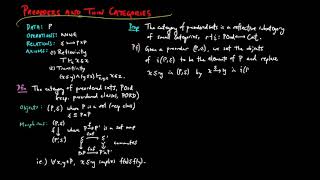 PREORDERS AND THIN CATEGORIES
DATA: P
OPERATIONS: NONE
RELATIONS: ≤ ↣ P×P
AXIOMS: i) Reflexivity
T ⊢ₓ x≤x
ii) Transitivity
(x≤y)∧(y≤z) ⊢ x≤z.
Def The category of preordered sets, Pord
(resp. preordered classes, PORD)
Objects: (P,≤) where P is a set (resp class)
Morphisms: (P,≤) where P → P' is a set map
f ↓
(P',≤')
≤ → ≤'
↓ ↓ commutes
P×P → P'×P'
i.e.) ∀x,y∈P, x≤y implies f(x)≤f(y).
Prop The category of preordered sets is a reflective subcategory
of small categories, r⊣i: Pord→Cat.
Pf) Given a preorder (P,≤), we set the objects
of i(P,≤) to be the elements of P and replace
x≤y in (P,≤) by x→y in i(P